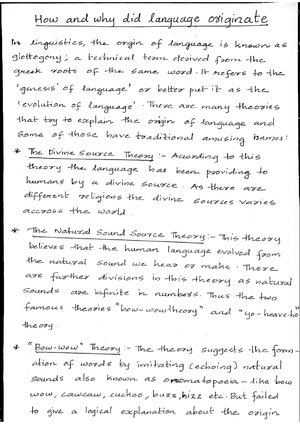 How and why did language originate
In linguistics, the orgin of language is known as
glottogony; a technical term derived from the
greek roots of the same word. It refers to the
'genesis' of language' or better put it as the
'evolution of language'. There are many theories
that try to explain the origin of language and
some of those have traditional amusing names:
* The Divine Source Theory :- According to this
theory the language has been providing to
humans by a divine source. As there are
different religions the divine sources varies
accross the world.
* The Natural Sound Source Theory:- This theory
believes that the human language evolved from
the natural sound we hear or make. There
are further divisions in this theory as natural
sounds are infinite in numbers. Thus the two
famous theories "bow-wow theory" and "yo-heave-ho"
theory.
* "Bow-wow" Theory :- The theory suggests the form-
ation of words by imitating (echoing) natural
sounds also known as onomatopoeia - like bow
wow, cawcaw, cuckoo, buzz, hizz etc. But failed
to give a logical explanation about the origin